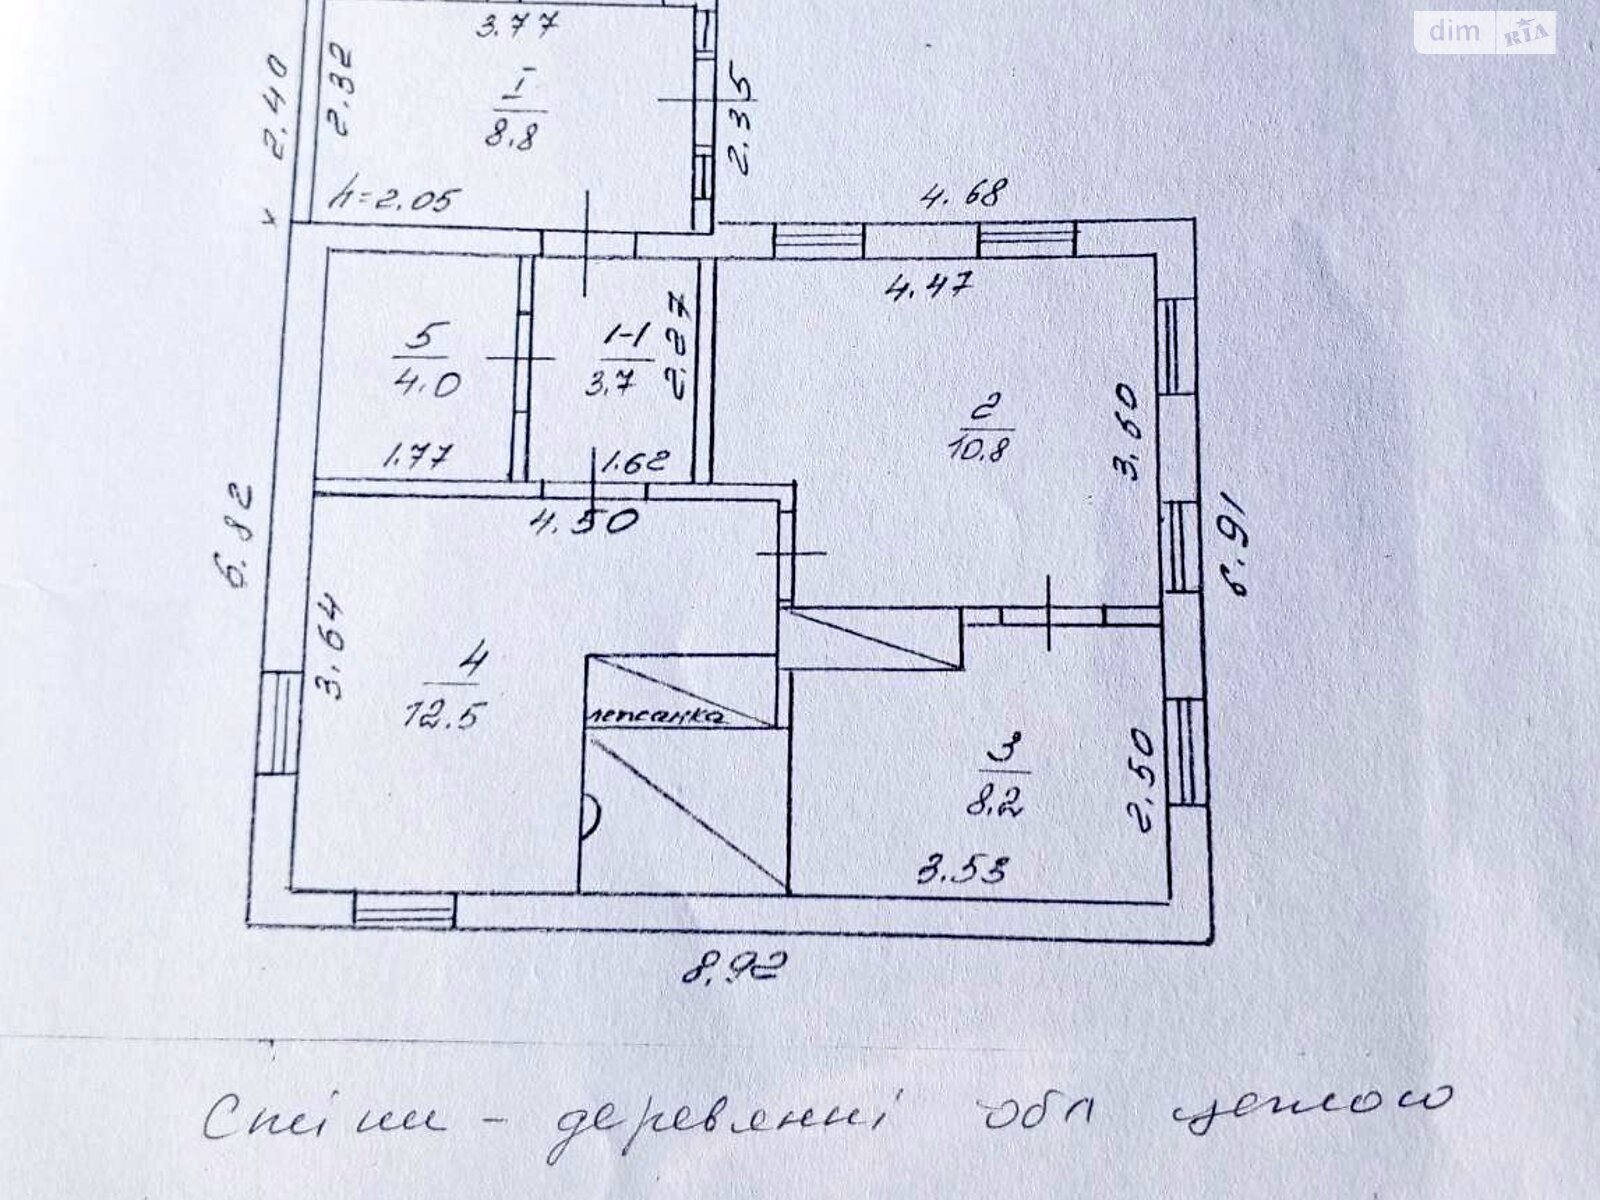 dim RIA
3.77
2.40
2.32
I
8.8
2.35
h=2.05
4.68
4.47
5
4.0
1-1
3.7
2.27
2
10.8
3.60
1.77
1.62
4.50
6.82
6.91
3.64
4
12.5
лежанка
3
8.2
2.50
3.53
8.92
Стіни - деревянні обл цеглою